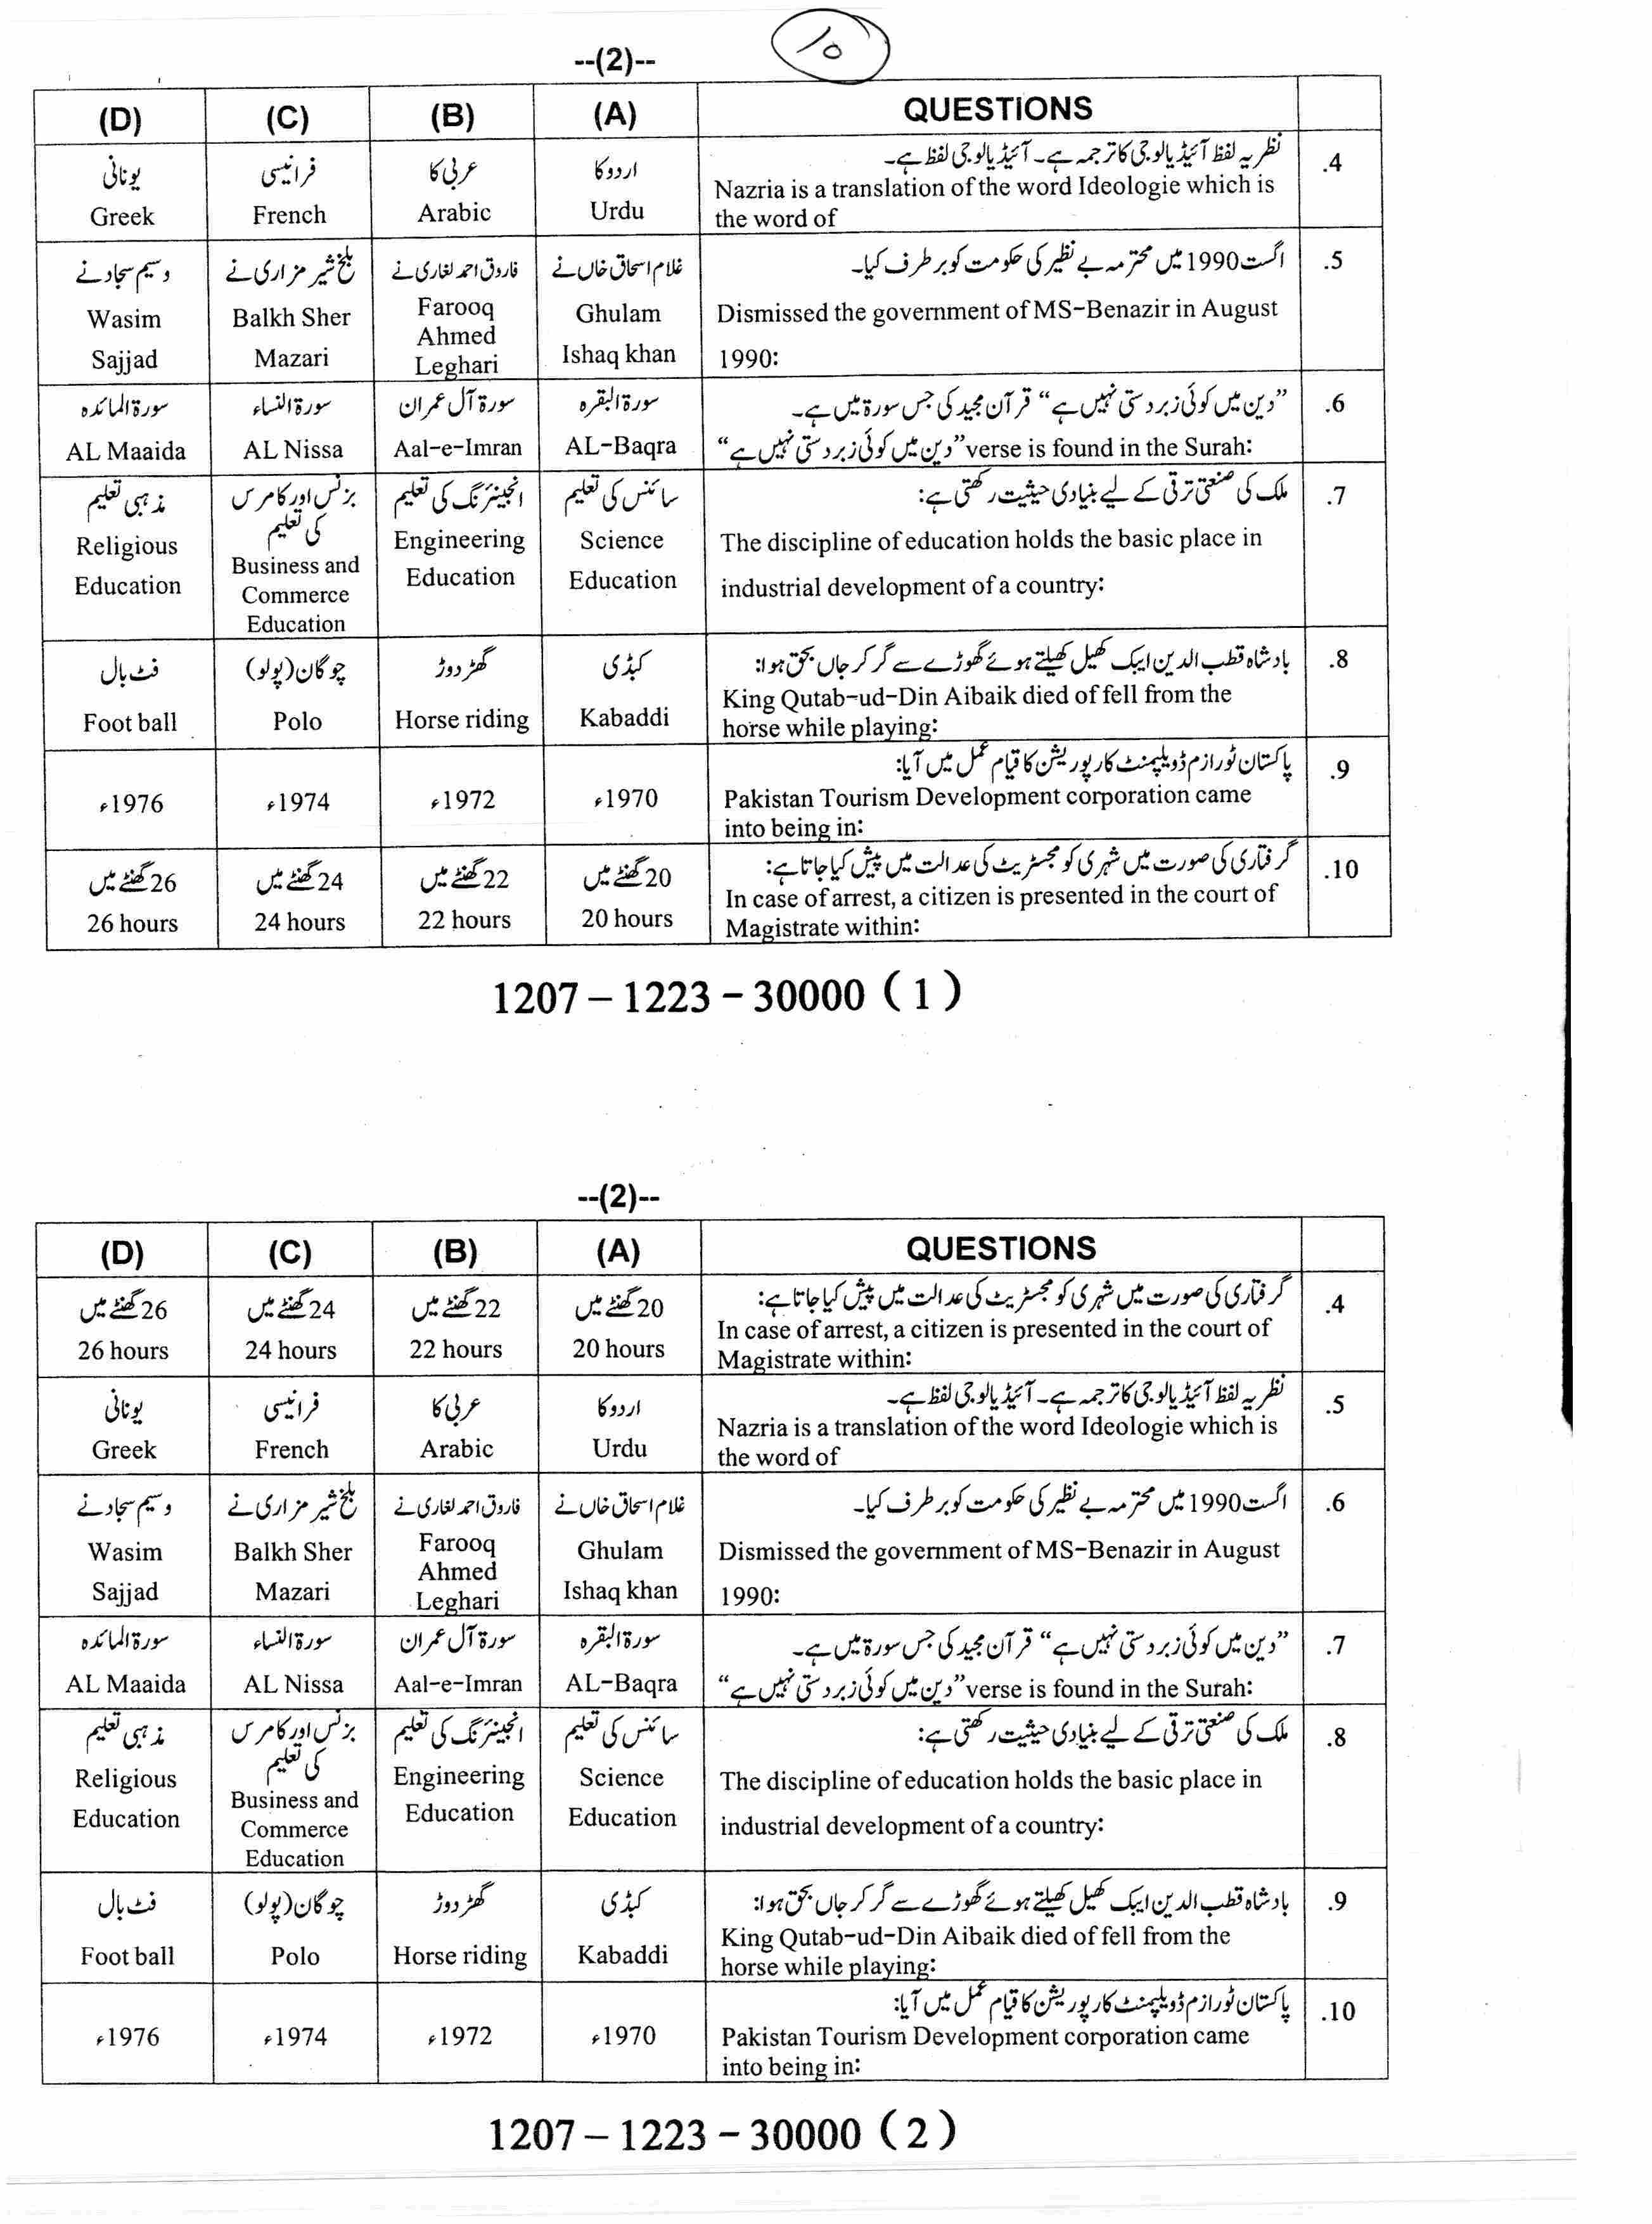 10
--(2)--
(D) (C) (B) (A) QUESTIONS
یونانی فرانسیسی عربی کا اردو کا نظریہ لفظ آئیڈیالوجی کا ترجمہ ہے۔ آئیڈیالوجی لفظ ہے۔ .4
Greek French Arabic Urdu Nazria is a translation of the word Ideologie which is
the word of
وسیم سجاد نے بلخ شیر مزاری نے فاروق احمد لغاری نے غلام اسحاق خاں نے اگست 1990 میں محترمہ بے نظیر کی حکومت کو برطرف کیا۔ .5
Wasim Balkh Sher Farooq Ghulam Dismissed the government of MS-Benazir in August
Ahmed
Sajjad Mazari Leghari Ishaq khan 1990:
سورۃ المائدہ سورۃ النساء سورۃ آل عمران سورۃ البقرہ ”دین میں کوئی زبردستی نہیں ہے“ قرآن مجید کی جس سورۃ میں ہے۔ .6
AL Maaida AL Nissa Aal-e-Imran AL-Baqra “دین میں کوئی زبردستی نہیں ہے”verse is found in the Surah:
مذہبی تعلیم بزنس اور کامرس کی تعلیم انجینئرنگ کی تعلیم سائنس کی تعلیم ملک کی صنعتی ترقی کے لیے بنیادی حیثیت رکھتی ہے: .7
Religious Business and Engineering Science The discipline of education holds the basic place in
Education Commerce Education Education industrial development of a country:
Education
فٹ بال چوگان (پولو) گھڑ دوڑ کبڈی بادشاہ قطب الدین ایبک کھیل کھیلتے ہوئے گھوڑے سے گر کر جاں بحق ہوا: .8
King Qutab-ud-Din Aibaik died of fell from the
Foot ball Polo Horse riding Kabaddi horse while playing:
پاکستان ٹورازم ڈویلپمنٹ کارپوریشن کا قیام عمل میں آیا: .9
1976ء 1974ء 1972ء 1970ء Pakistan Tourism Development corporation came
into being in:
26 گھنٹے میں 24 گھنٹے میں 22 گھنٹے میں 20 گھنٹے میں گرفتاری کی صورت میں شہری کو مجسٹریٹ کی عدالت میں پیش کیا جاتا ہے: .10
In case of arrest, a citizen is presented in the court of
26 hours 24 hours 22 hours 20 hours Magistrate within:
1207 – 1223 – 30000 (1)
--(2)--
(D) (C) (B) (A) QUESTIONS
26 گھنٹے میں 24 گھنٹے میں 22 گھنٹے میں 20 گھنٹے میں گرفتاری کی صورت میں شہری کو مجسٹریٹ کی عدالت میں پیش کیا جاتا ہے: .4
In case of arrest, a citizen is presented in the court of
26 hours 24 hours 22 hours 20 hours Magistrate within:
یونانی فرانسیسی عربی کا اردو کا نظریہ لفظ آئیڈیالوجی کا ترجمہ ہے۔ آئیڈیالوجی لفظ ہے۔ .5
Greek French Arabic Urdu Nazria is a translation of the word Ideologie which is
the word of
وسیم سجاد نے بلخ شیر مزاری نے فاروق احمد لغاری نے غلام اسحاق خاں نے اگست 1990 میں محترمہ بے نظیر کی حکومت کو برطرف کیا۔ .6
Wasim Balkh Sher Farooq Ghulam Dismissed the government of MS-Benazir in August
Ahmed
Sajjad Mazari Leghari Ishaq khan 1990:
سورۃ المائدہ سورۃ النساء سورۃ آل عمران سورۃ البقرہ ”دین میں کوئی زبردستی نہیں ہے“ قرآن مجید کی جس سورۃ میں ہے۔ .7
AL Maaida AL Nissa Aal-e-Imran AL-Baqra “دین میں کوئی زبردستی نہیں ہے”verse is found in the Surah:
مذہبی تعلیم بزنس اور کامرس کی تعلیم انجینئرنگ کی تعلیم سائنس کی تعلیم ملک کی صنعتی ترقی کے لیے بنیادی حیثیت رکھتی ہے: .8
Religious Business and Engineering Science The discipline of education holds the basic place in
Education Commerce Education Education industrial development of a country:
Education
فٹ بال چوگان (پولو) گھڑ دوڑ کبڈی بادشاہ قطب الدین ایبک کھیل کھیلتے ہوئے گھوڑے سے گر کر جاں بحق ہوا: .9
King Qutab-ud-Din Aibaik died of fell from the
Foot ball Polo Horse riding Kabaddi horse while playing:
پاکستان ٹورازم ڈویلپمنٹ کارپوریشن کا قیام عمل میں آیا: .10
1976ء 1974ء 1972ء 1970ء Pakistan Tourism Development corporation came
into being in:
1207 – 1223 – 30000 (2)